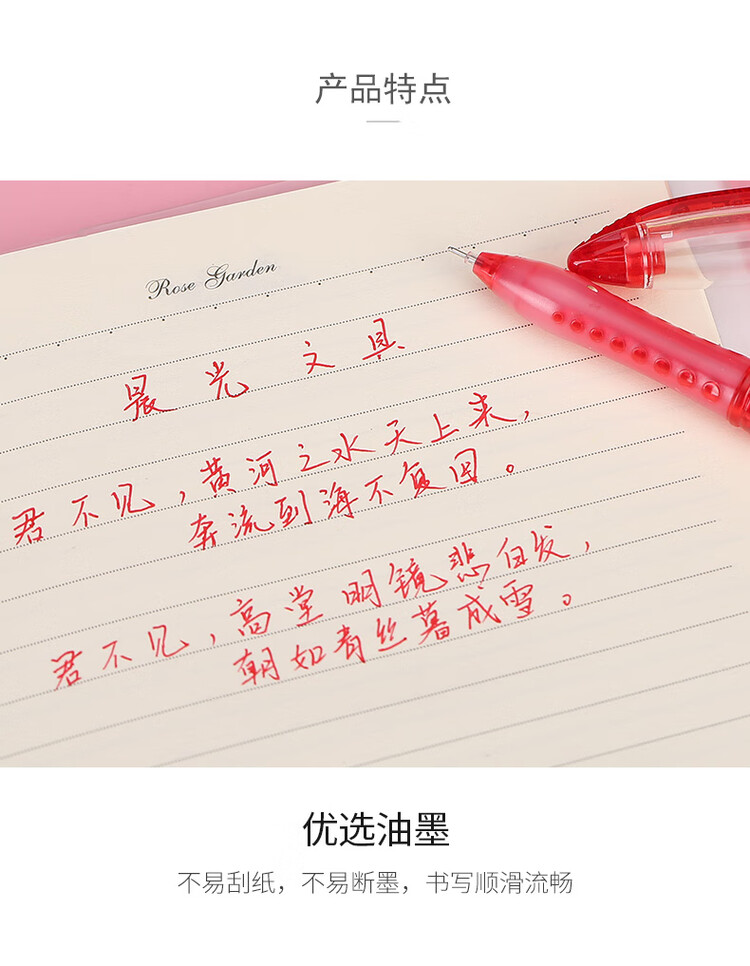 产品特点
Rose Garden
晨光文具
君不见，黄河之水天上来，
奔流到海不复回。
君不见，高堂明镜悲白发，
朝如青丝暮成雪。
优选油墨
不易刮纸，不易断墨，书写顺滑流畅